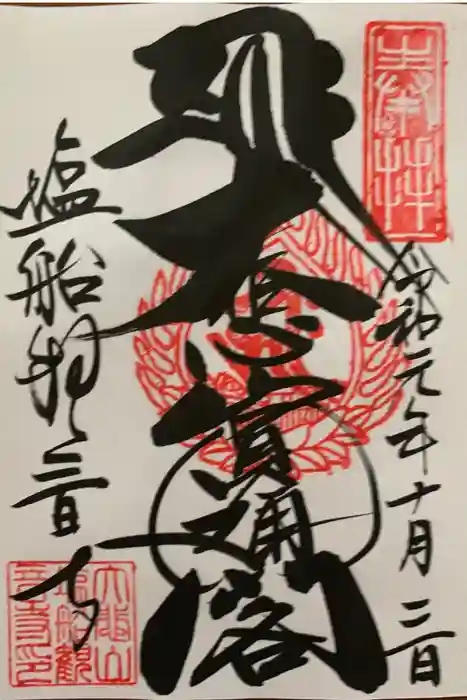 奉拝
令和元年十月二日
大悲圓通閣
塩船観音寺
大悲山
塩船観
音寺之印